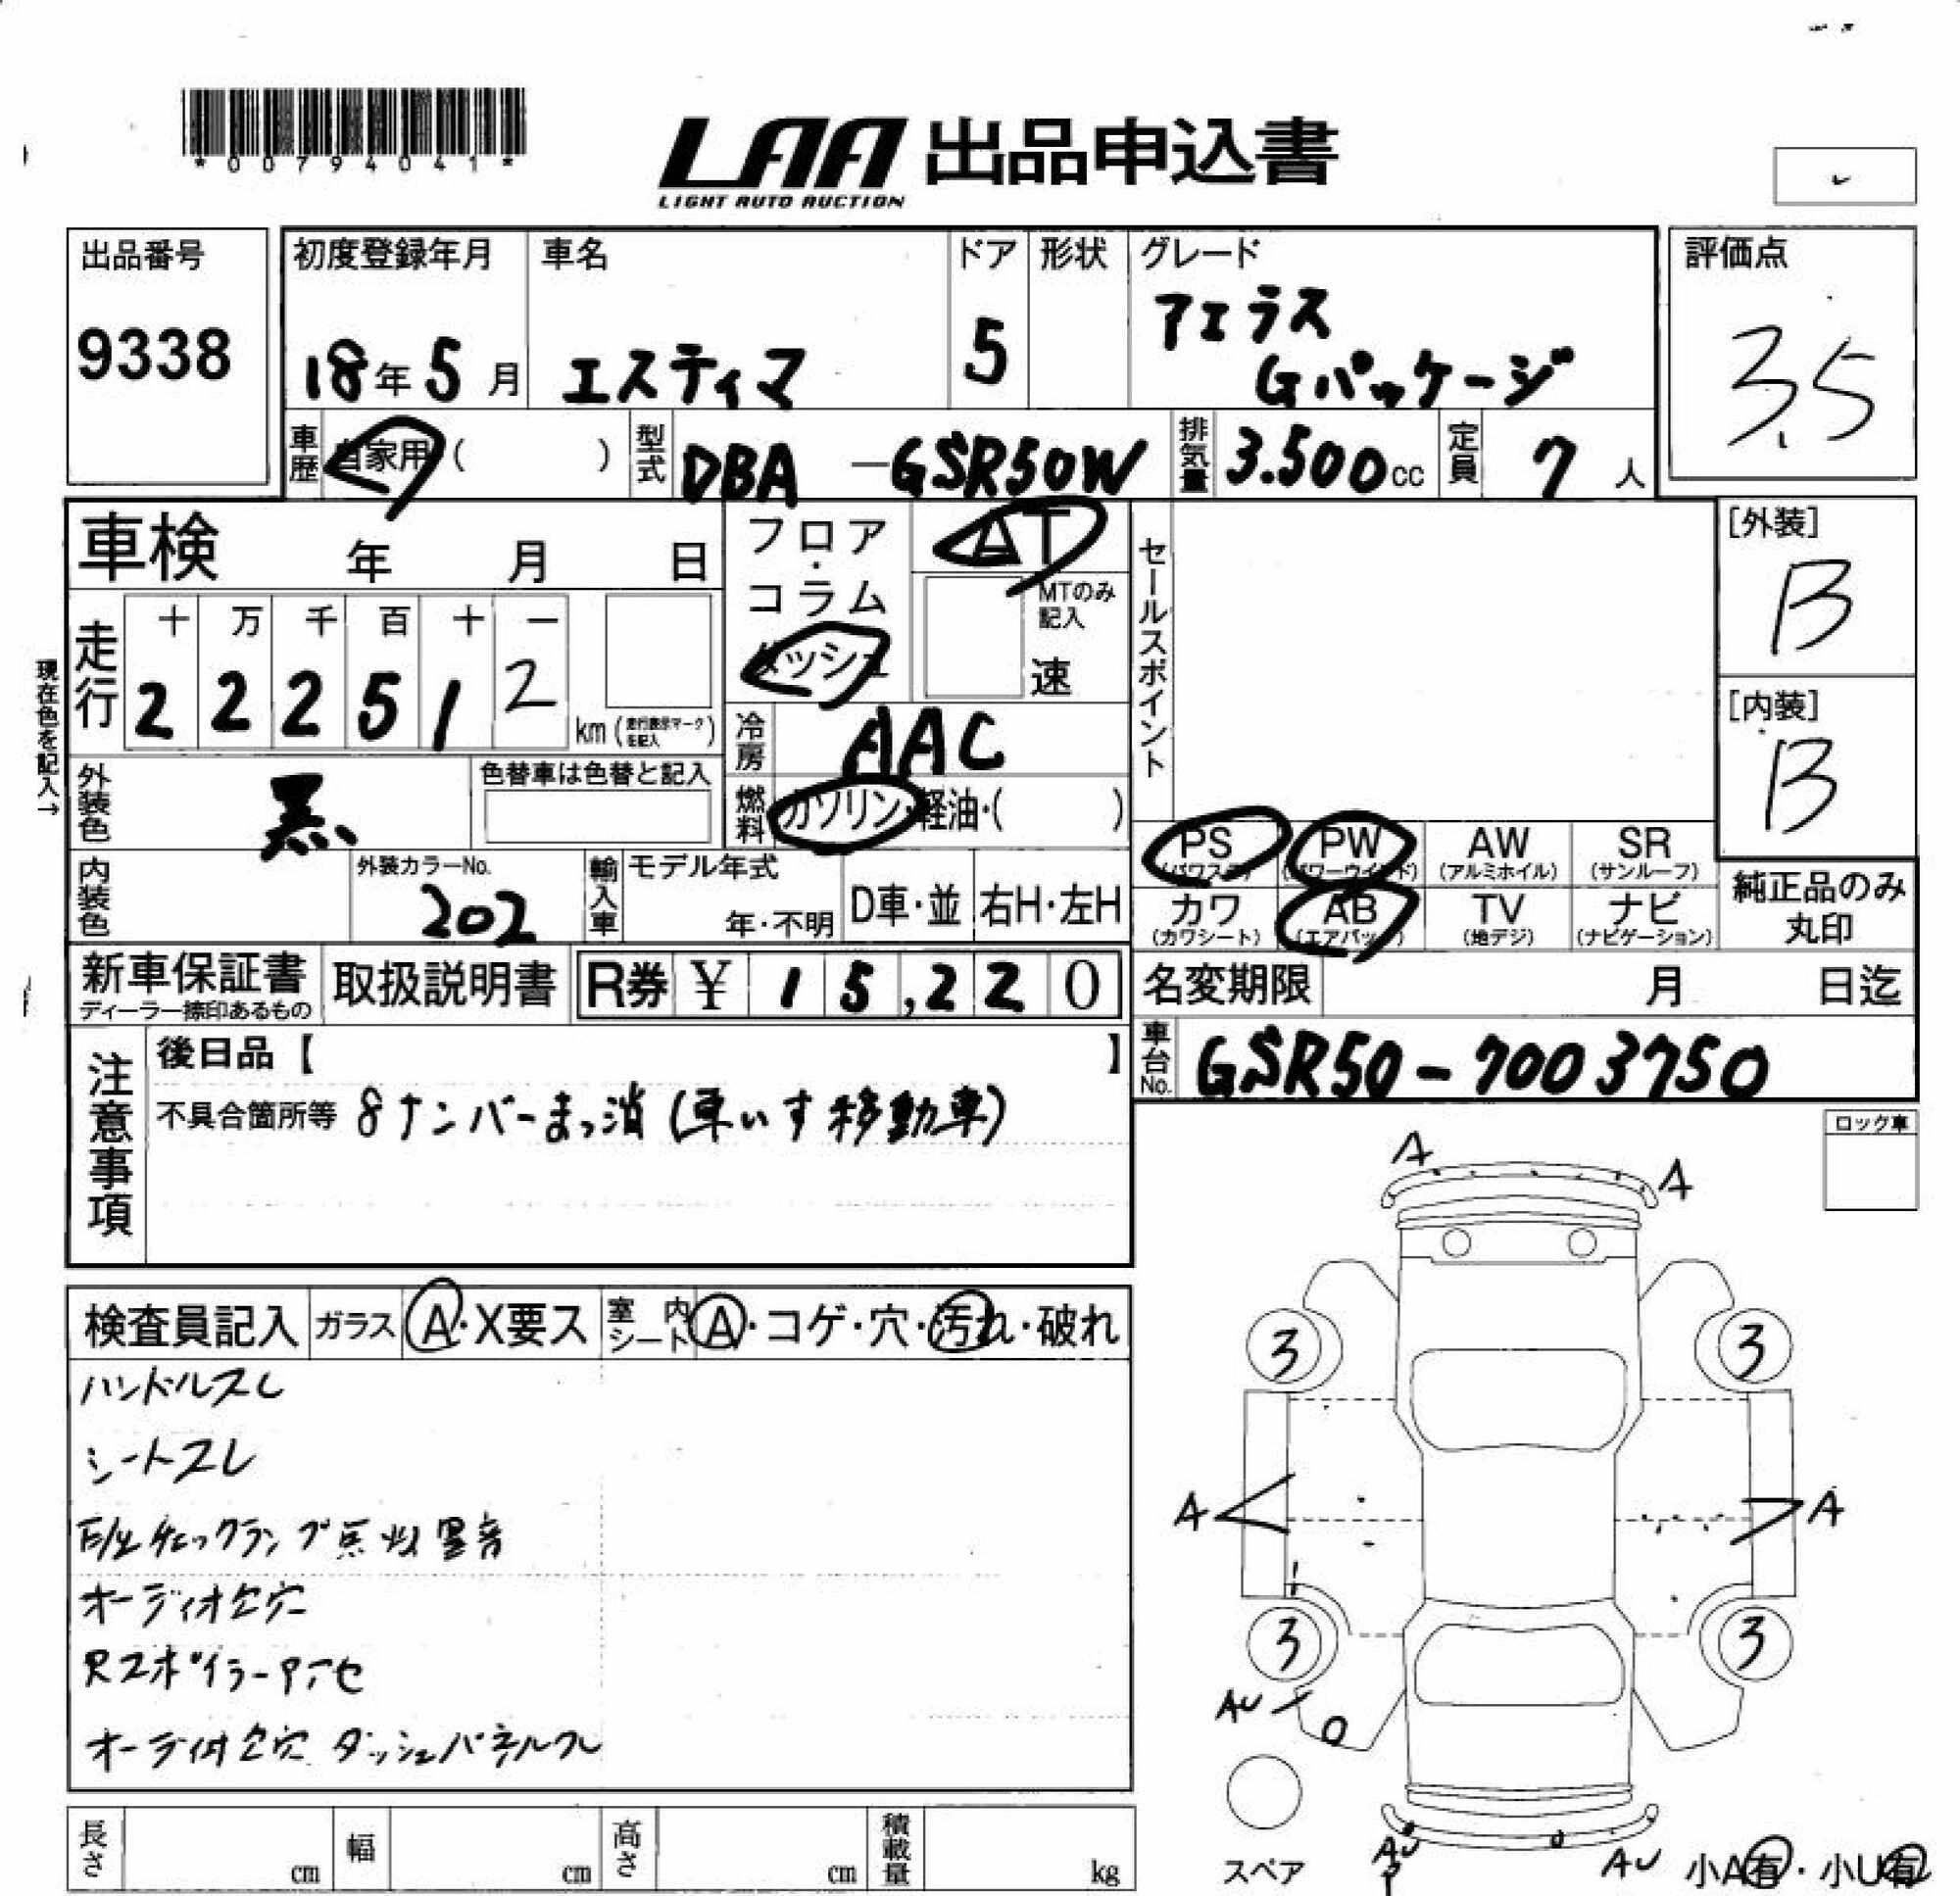 *00794041*
LAA 出品申込書
LIGHT AUTO AUCTION
出品番号
9338
初度登録年月
18年5月
車名
エスティマ
ドア
5
形状
グレード
アエラス
Gパッケージ
評価点
3.5
車歴 自家用 ( )
型式 DBA -GSR50W
排気量 3.500cc
定員 7人
車検 年 月 日
フロア・
コラム
ダッシュ
AT
MTのみ
記入
速
セールスポイント
[外装]
B
[内装]
B
現在色を記入→
走行
十 万 千 百 十 一
2 2 2 5 1 2
km (走行表示マークを記入)
冷房 AAC
外装色 黒
色替車は色替と記入
燃料 ガソリン・軽油・( )
PS PW AW SR
(パワステ) (パワーウインド) (アルミホイル) (サンルーフ)
カワ AB TV ナビ
(カワシート) (エアバッグ) (地デジ) (ナビゲーション)
純正品のみ
丸印
内装色
外装カラーNo.
202
輸入車
モデル年式
年・不明
D車・並
右H・左H
新車保証書
ディーラー捺印あるもの
取扱説明書
R券 ¥ 15,220
名変期限 月 日迄
車台No. GSR50-7003750
注意事項
後日品【 】
不具合箇所等 8ナンバーまっ消(車いす移動車)
ロック車
検査員記入 ガラス A・X要ス 室内シート A・コゲ・穴・汚れ・破れ
ハンドルスレ
シートスレ
E/gチェックランプ点灯 異音
オーディオ欠穴
Rスポイラーアテセ
オーディオ欠穴 ダッシュパネルワレ
A A
3 3
A A
3 3
AU
スペア
AU AU
小A有・小U有
長さ cm 幅 cm 高さ cm 積載量 kg